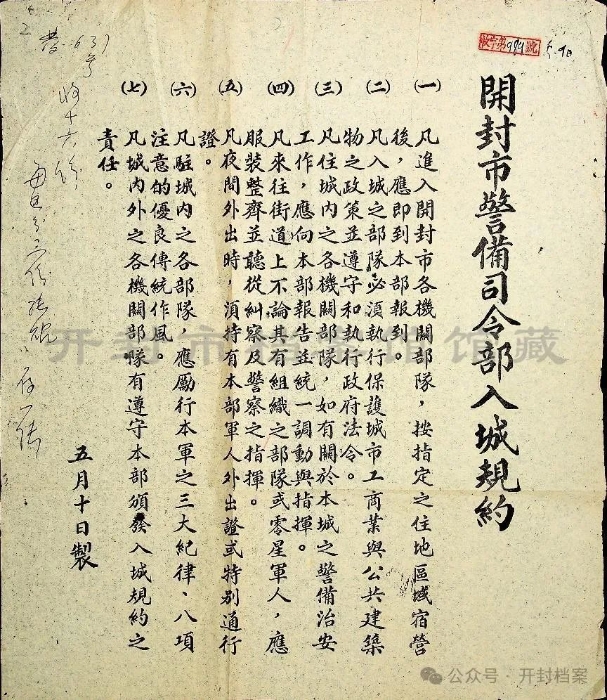 開封市警備司令部入城規約
㈠ 凡進入開封市各機關部隊，按指定之住地區域宿營
後，應即到本部報到。
㈡ 凡入城之部隊必須執行保護城市工商業與公共建築
物之政策並遵守和執行政府法令。
㈢ 凡住城內之各機關部隊，如有關於本城之警備治安
工作，應向本部報告並統一調動與指揮。
㈣ 凡來往街道上不論其有組織之部隊或零星軍人，應
服裝整齊並聽從糾察及警察之指揮。
㈤ 凡夜間外出時，須持有本部軍人外出證或特別通行
證。
㈥ 凡駐城內之各部隊，應勵行本軍之三大紀律、八項
注意的優良傳統作風。
㈦ 凡城內外之各機關部隊有遵守本部頒發入城規約之
責任。
五月十日製
639
号
開封市档案馆藏
公众号·开封档案